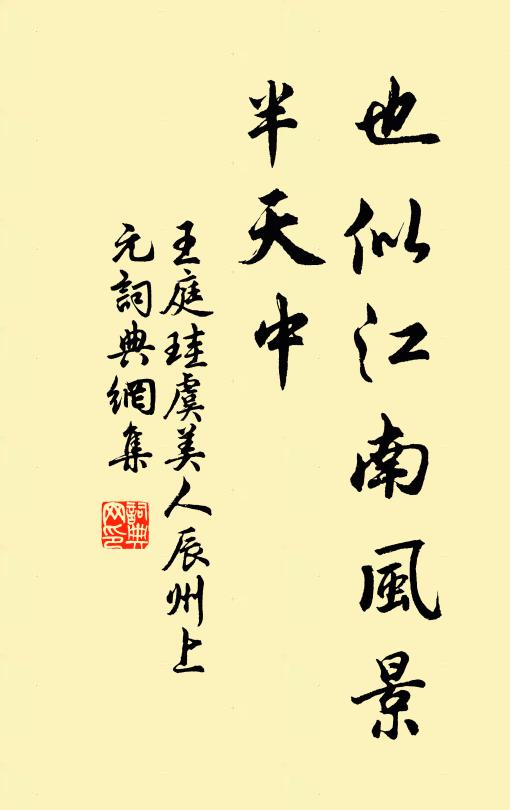 也似江南風景
半天中
王庭珪虞美人辰州上
元詞典網集
詞典
网印